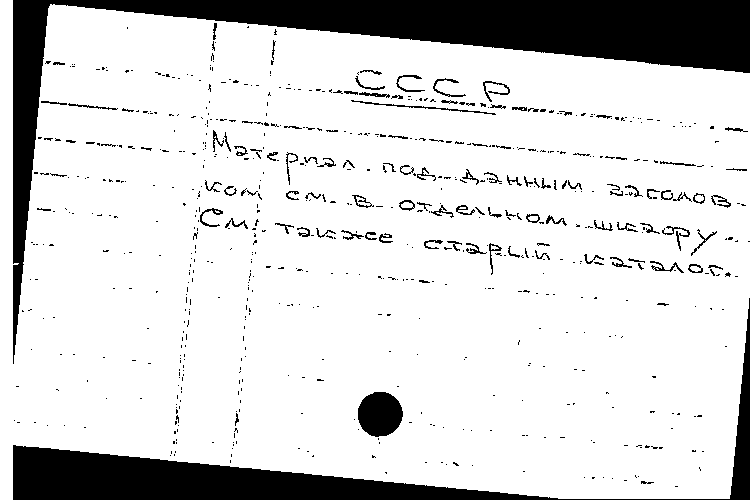 СССР
Материал под данным заголов-
ком см. в отдельном шкафу.
См. также старый каталог.